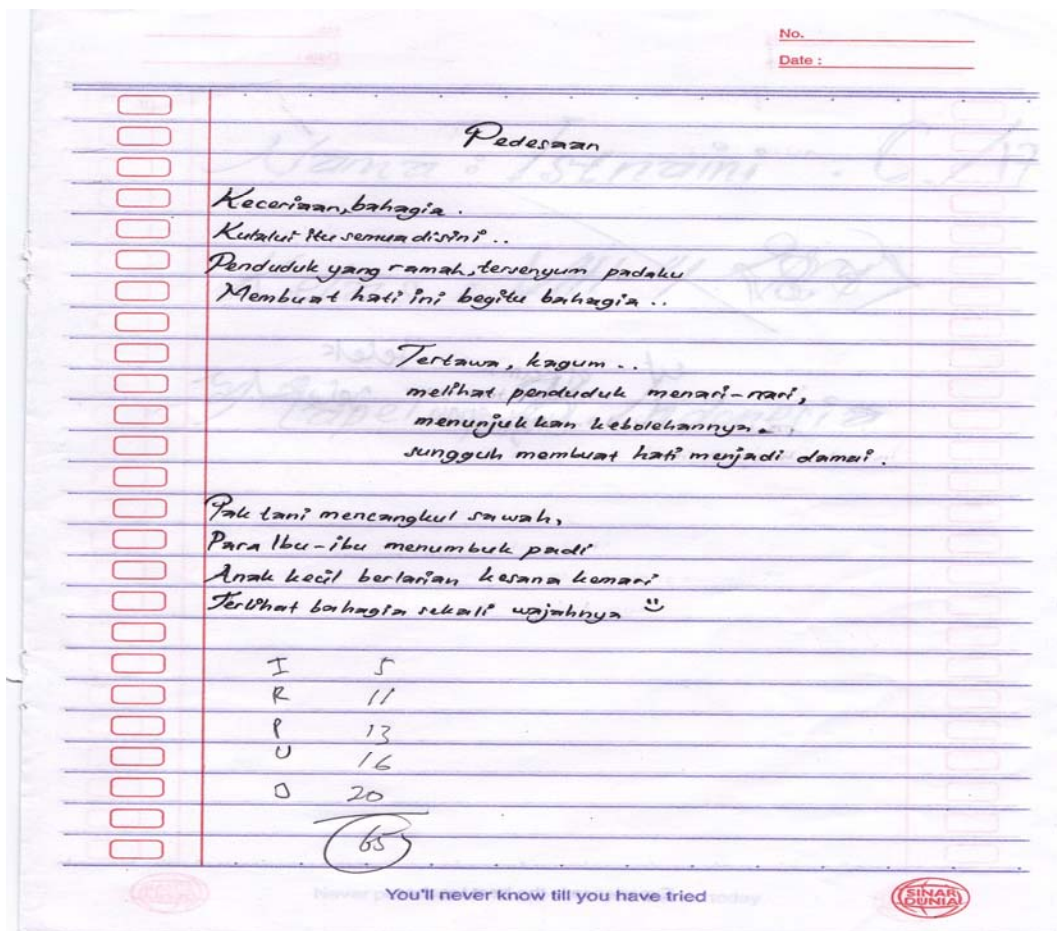 No.
Date :
Pedesaan
Keceriaan, bahagia .
Kulalui itu semua disini ..
Penduduk yang ramah, tersenyum padaku
Membuat hati ini begitu bahagia ..
Tertawa, kagum ..
melihat penduduk menari-nari,
menunjukkan kebolehannya .
sungguh membuat hati menjadi damai .
Pak tani mencangkul sawah,
Para Ibu-ibu menumbuk padi
Anak kecil berlarian kesana kemari
Terlihat bahagia sekali wajahnya
I 5
R 11
P 13
U 16
O 20
65
You'll never know till you have tried
SINAR DUNIA